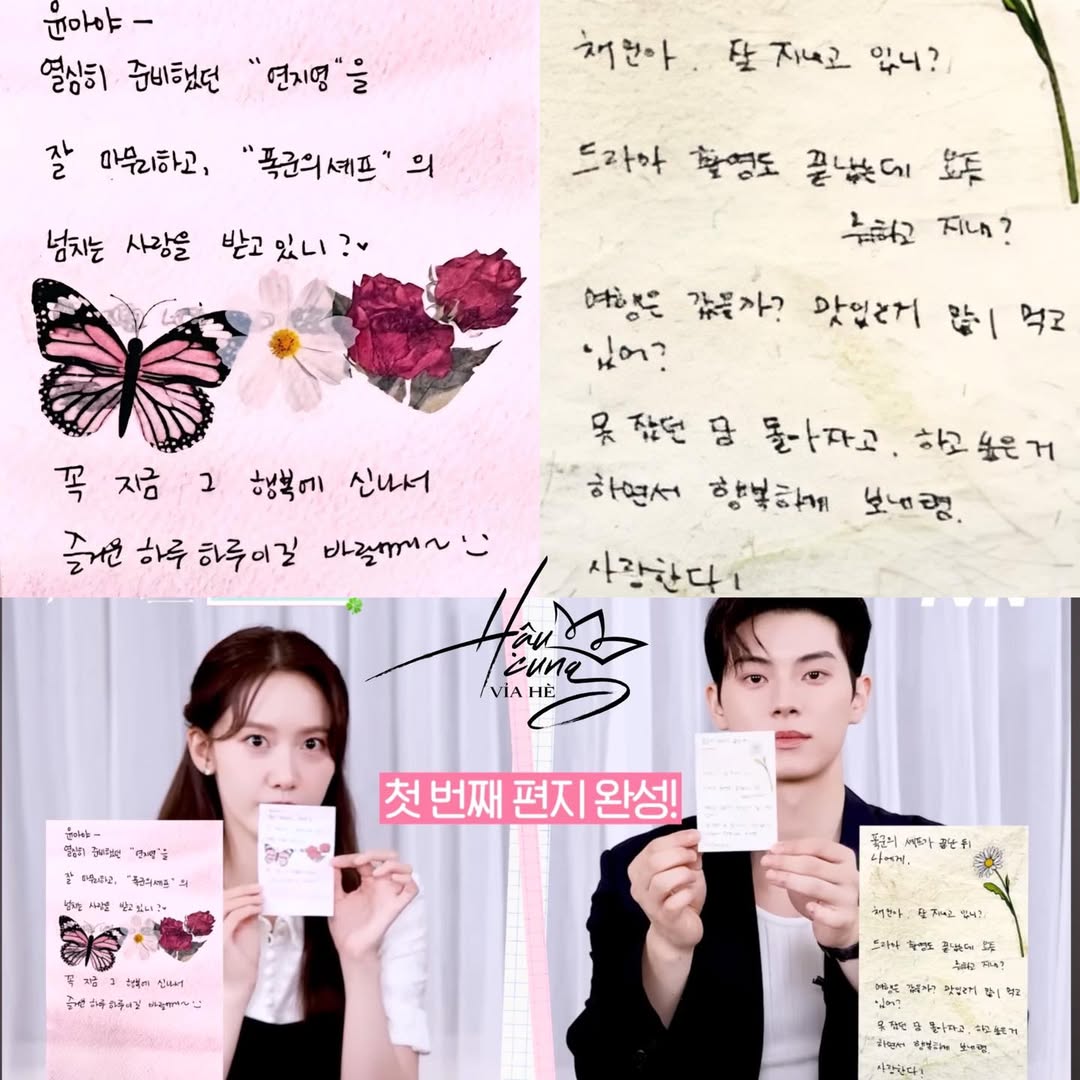 윤아야 -
열심히 준비했던 "연지영"을
잘 마무리하고, "폭군의 셰프"의
넘치는 사랑을 받고있니?♥
꼭 지금 그 행복에 신나서
즐거운 하루하루이길 바랄게~ :)
채원아. 잘 지내고 있니?
드라마 촬영도 끝났는데 요즘
뭐하고 지내?
여행은 갔을까? 맛있는거 많이 먹고
있어?
못 잤던 잠 몰아자고, 하고싶은거
하면서 행복하게 보내렴.
사랑한다!
Hậu
cung
VỈA HÈ
첫 번째 편지 완성!
윤아야 -
열심히 준비했던 "연지영"을
잘 마무리하고, "폭군의 셰프"의
넘치는 사랑을 받고있니?♥
꼭 지금 그 행복에 신나서
즐거운 하루하루이길 바랄게~ :)
폭군의 셰프가 끝난 뒤
나에게.
채원아. 잘 지내고 있니?
드라마 촬영도 끝났는데 요즘
뭐하고 지내?
여행은 갔을까? 맛있는거 많이 먹고
있어?
못 잤던 잠 몰아자고, 하고싶은거
하면서 행복하게 보내렴.
사랑한다!